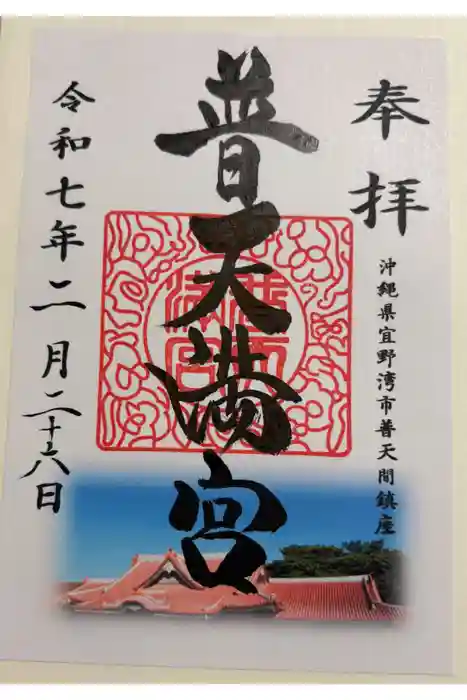 奉拝
沖縄県宜野湾市普天間鎮座
普天満宮
令和七年二月二十六日